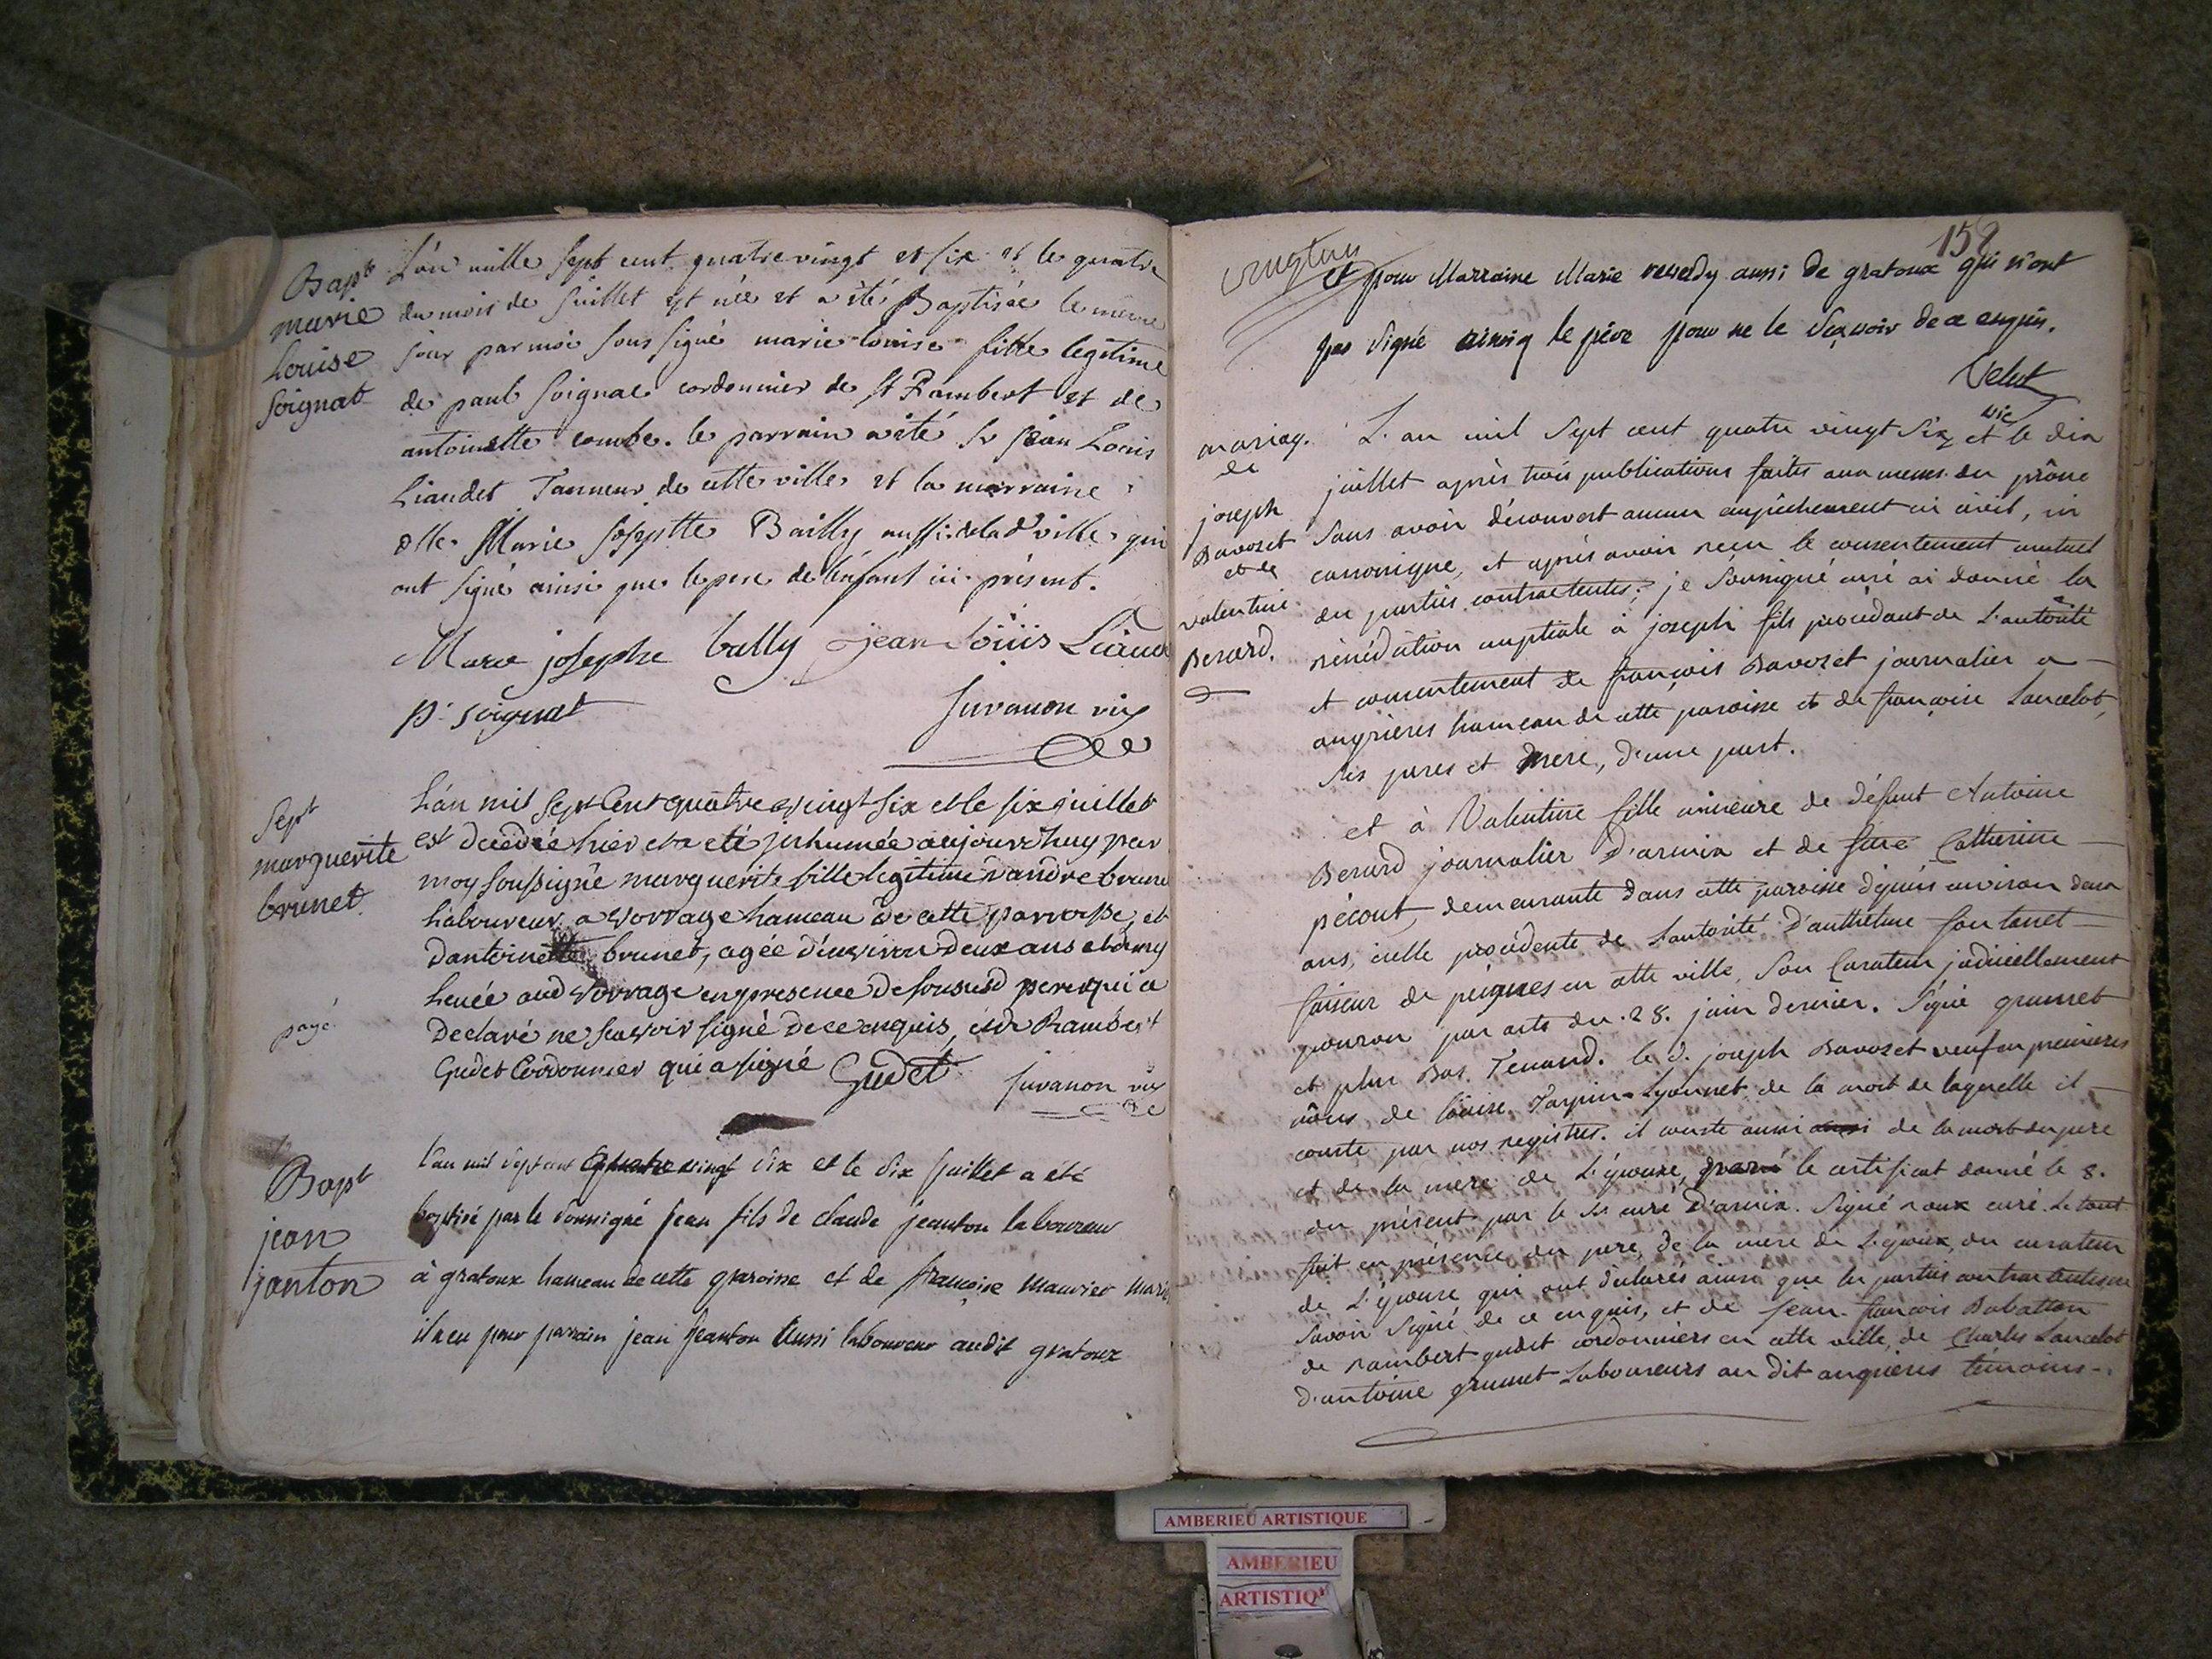 Bapt
marie
Louise
Soignat
L'an mille sept cent quatre vingt et six et le quatre
du mois de juillet est née et a été Baptisée le même
jour par moi sous signé marie louise fille legitime
de paul soignat cordonnier de st Rambert et de
antoinette combe. le parrain a été sr jean Louis
Liaudet Tanneur de cette ville et la marraine
dlle Marie Josephte Bailly aussi de lad ville qui
ont signé ainsi que le pere de l'enfant ici présent.
Marie josephe bally jean loüis Liaud
p. soignat juvanon vic
Sept
marguerite
brunet
payé
L'an mil sept Cent quatre vingt six et le six juillet
est decedée hier et a eté inhumée aujourd'huy par
moy soussigné marguerite fille legitime d'andré brune
Laboureur a vorrage hameau de cette parroisse, et
d'antoinette brunet, agée d'environ deux ans et demy
Levée aud vorrage en presence de soususd pere qui a
Declaré ne scavoir signé de ce enquis, et de Rambert
Gudet Cordonnier qui a signé Gudet juvanon vic
Bapt
jean
janton
L'an mil sept cent quatre vingt six et le six juillet a été
baptisé par le soussigné jean fils de claude jeanton laboureur
à gratoux hameau de cette paroisse et de françoise mauvier mari
il a eu pour parrain jean jeanton aussi laboureur audit gratoux
158
et pour Marraine Marie reverdy aussi de gratoux qui n'ont
pas signé ainsi q le père pour ne le sçavoir de ce enquis.
Velut
vic
mariag.
de
joseph
Bavozet
et de
valentine
Berard.
L'an mil sept cent quatre vingt six, et le dix
juillet après trois publications faites aux messes du prône
sans avoir découvert aucun empêchement ni civil, ni
canonique, et après avoir reçu le consentement mutuel
des parties contractentes; je soussigné curé ai donné la
bénédiction nuptiale à joseph fils procédant de l'autorité
et consentement de françois Bavozet journalier a
angrieres hameau de cette paroisse et de françoise Lancelot,
ses peres et mere, d'une part.
et à Valentine fille mineure de défunt Antoine
Berard journalier d'arnix et de füe Catherine
pécout, demeurante dans cette paroisse depuis environ deux
ans, icelle procédente de l'autorité d'anthelme fontanet
faiseur de peignes en cette ville, son Curateur judiciellement
pourvu par acte du 28. juin dernier. Signé grumet
et plus Bas Tenand. le d. joseph Bavozet veuf en premieres
nôces de loüise Tarpin-Lyonnet de la mort de laquelle il
conste par nos registres. il conste aussi de la mort du pere
et de la mere de l'épouse, par le certificat donné le 8.
du présent par le sr curé d'arnix. Signé roux curé. Le tout
fait en présence du pere, de la mere de l'époux, du curateur
de l'épouse qui ont déclarés ainsi que les parties contractentes ne
savoir signé de ce enquis, et de jean françois Babatton
de rambert gudet cordonniers en cette ville, de Charles Lancelot
d'antoine grumet Laboureurs au dit angrieres témoins.
AMBERIEU ARTISTIQUE
AMBERIEU
ARTISTIQ